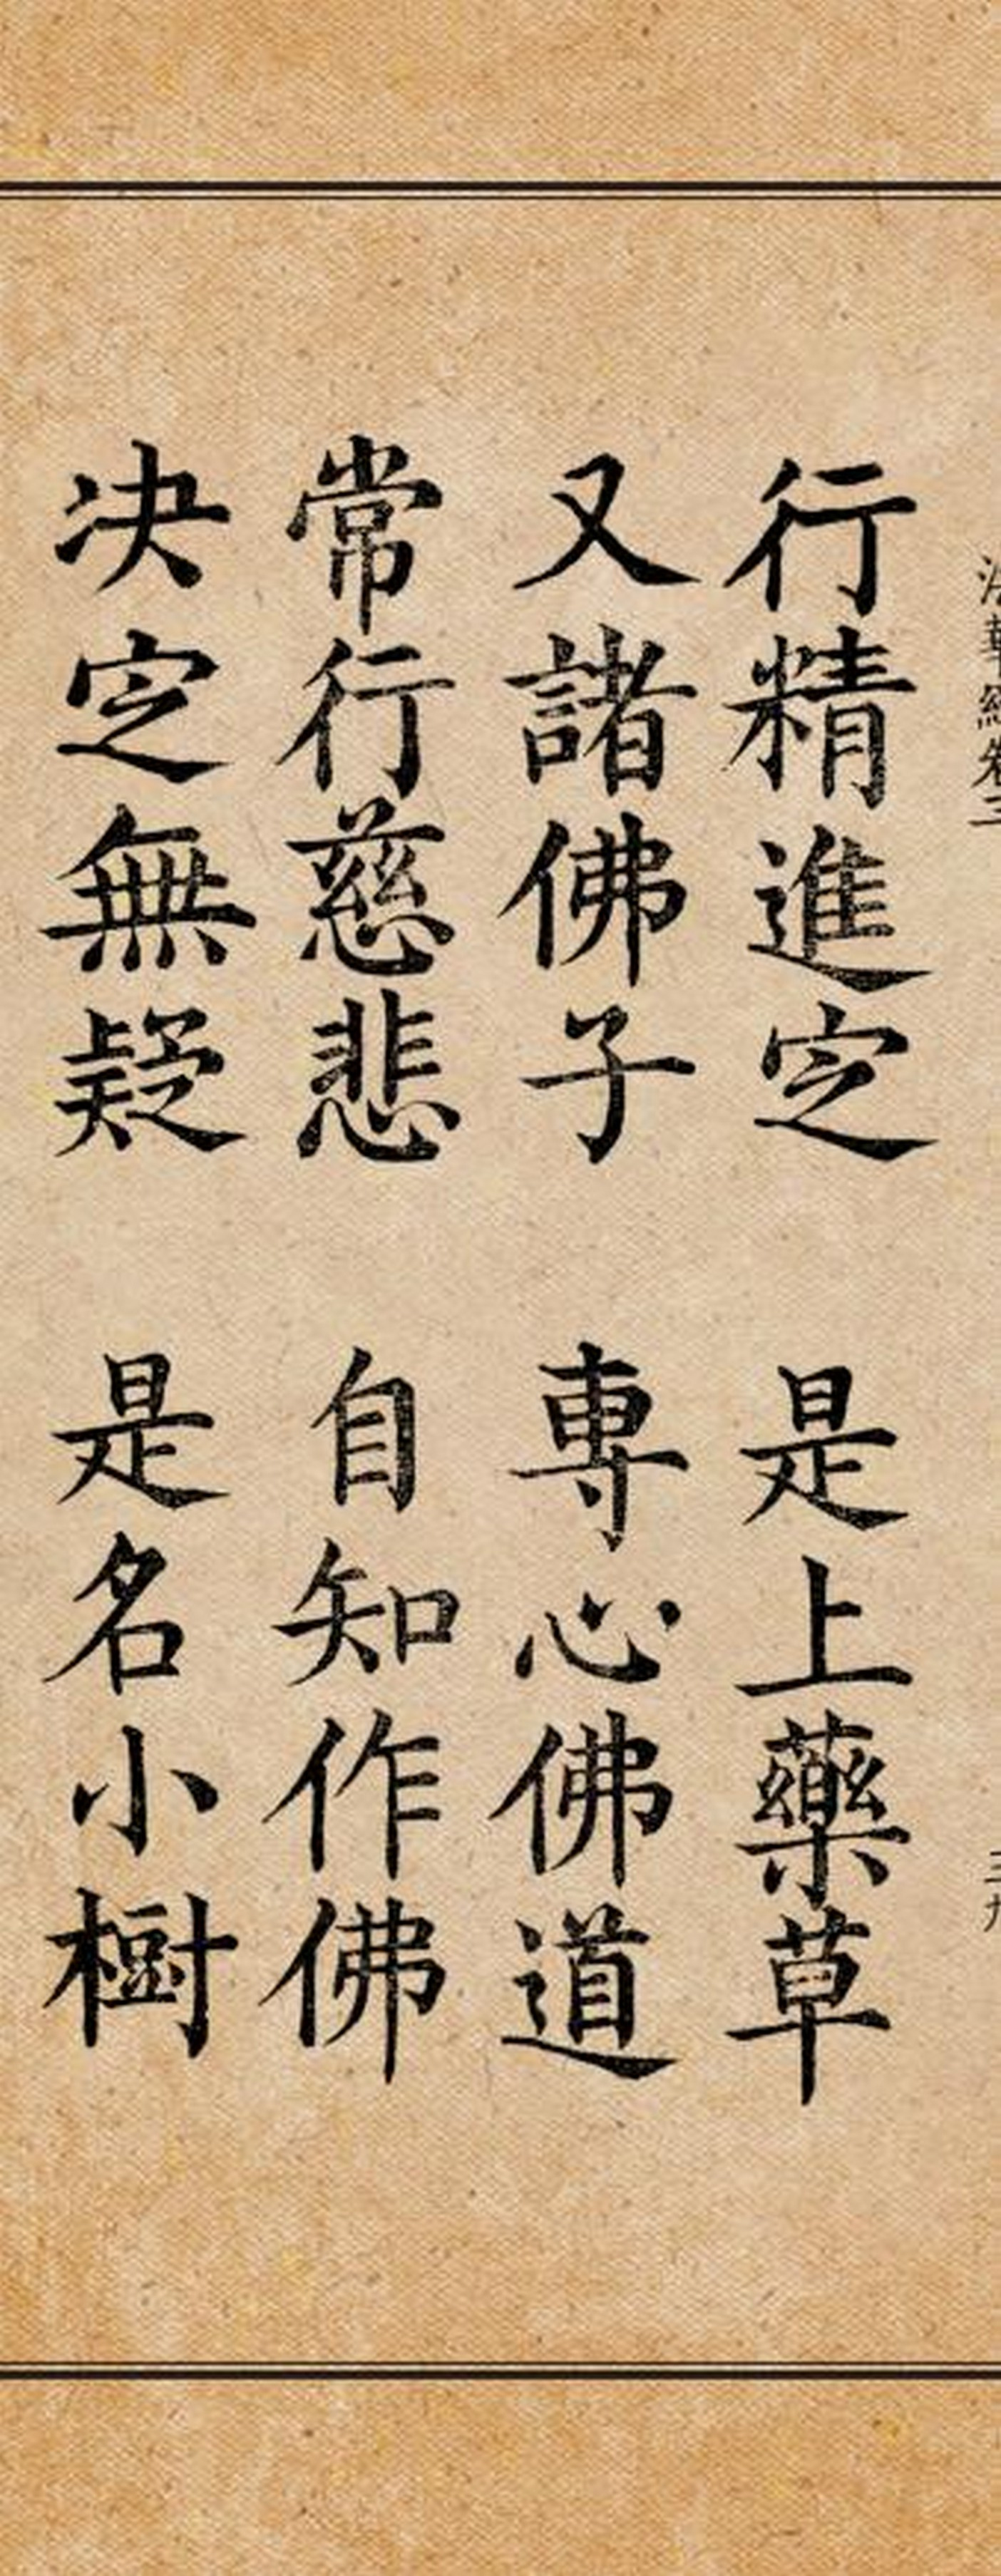 法華經卷三 三九
行精進定 是上藥草
又諸佛子 專心佛道
常行慈悲 自知作佛
决定無疑 是名小樹